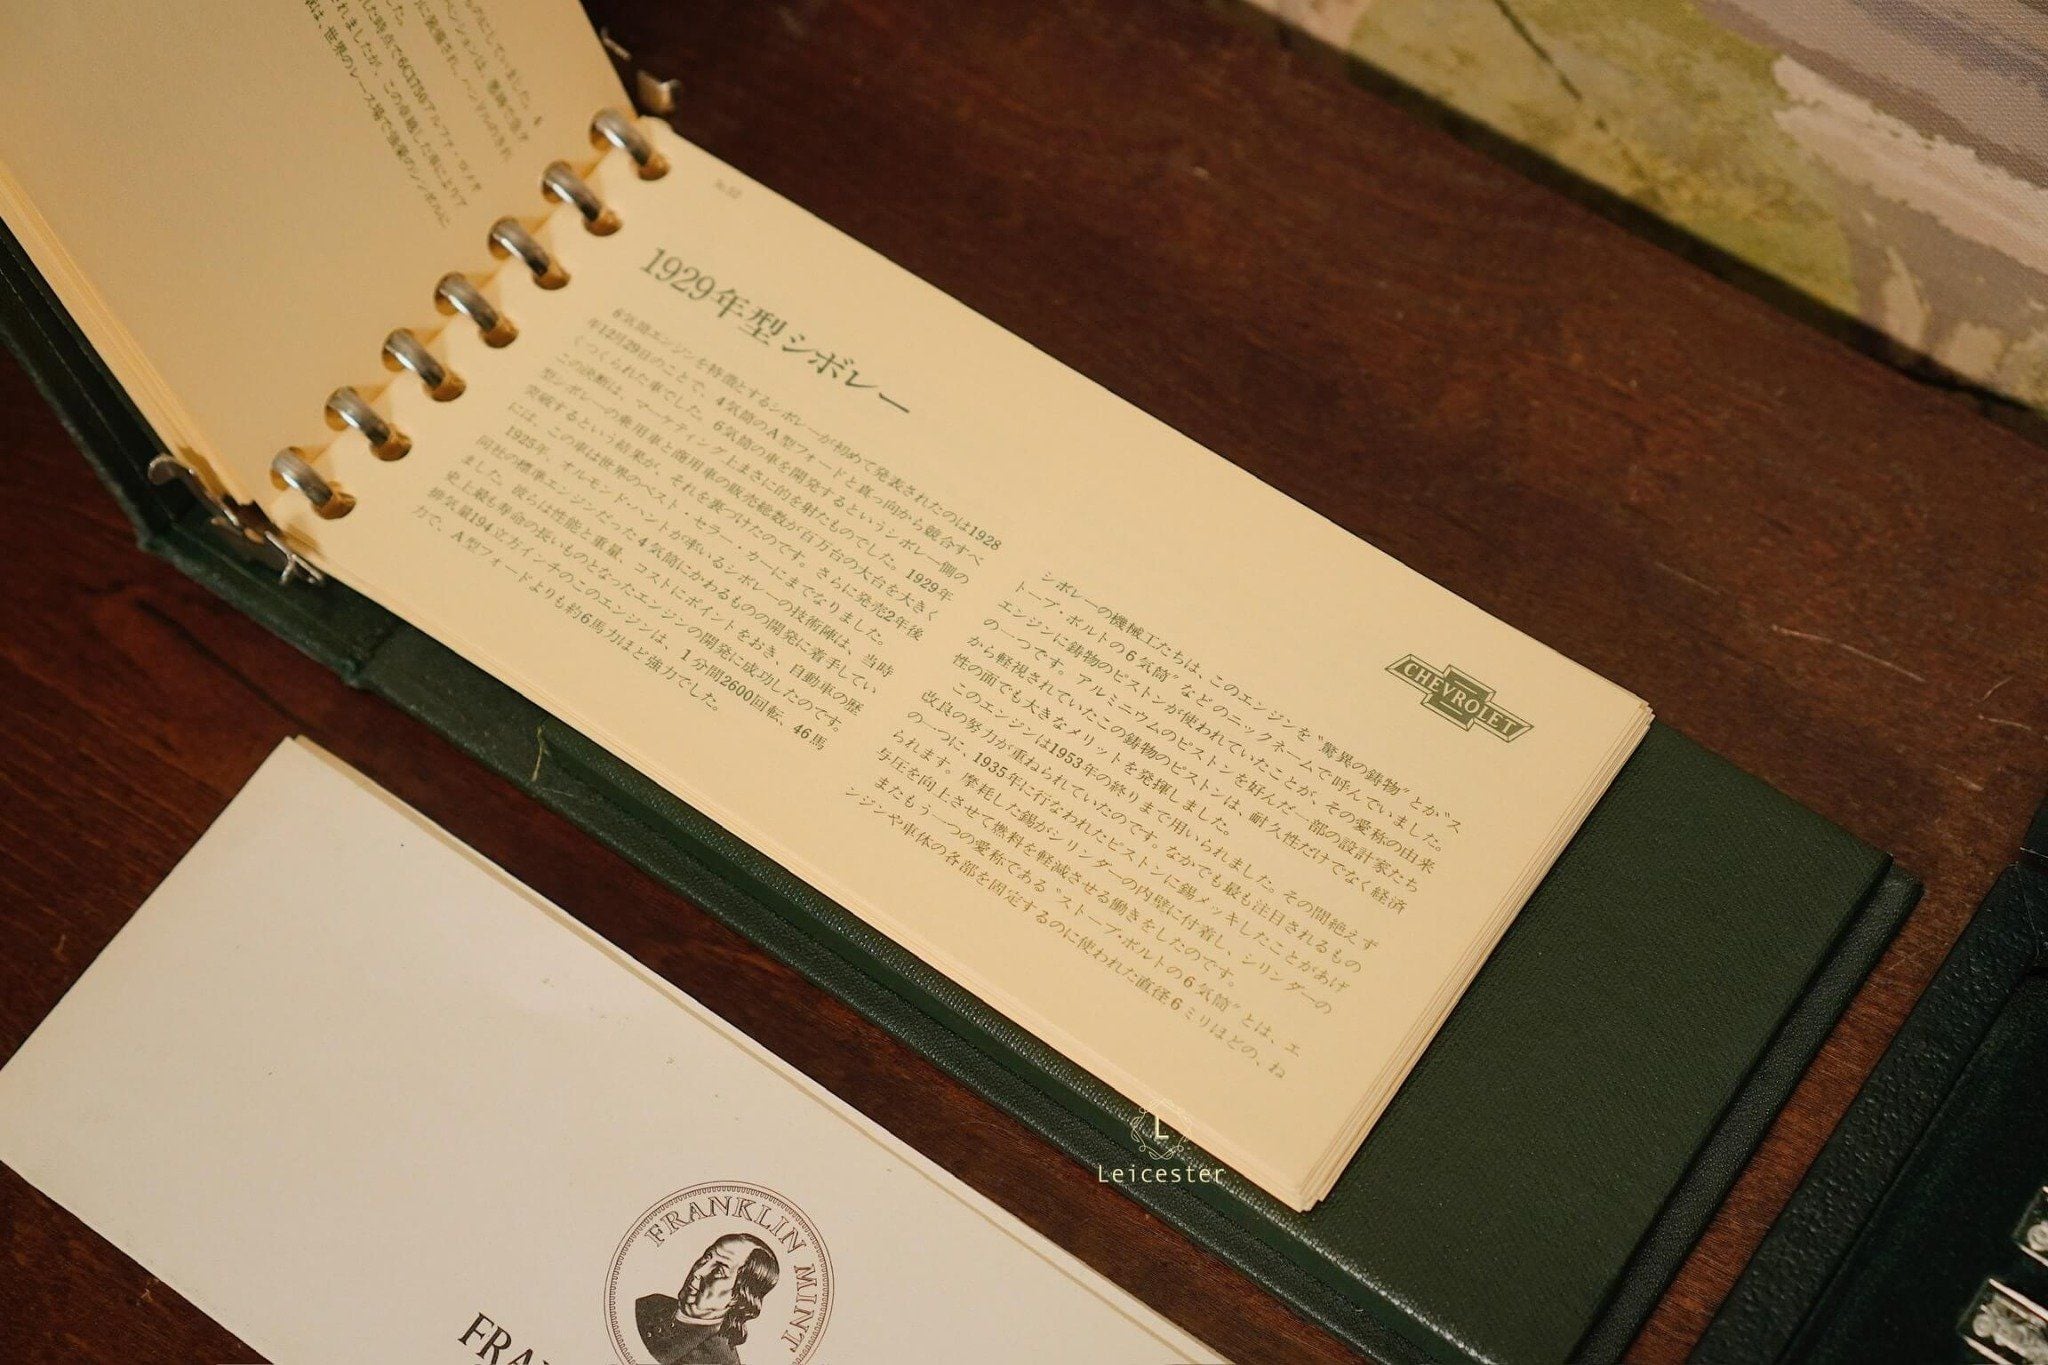 No.52
1929年型シボレー
6気筒エンジンを特徴とするシボレーが初めて発表されたのは1928
年12月29日のことで、4気筒のA型フォードと真っ向から競合すべ
くつくられた車でした。6気筒の車を開発するというシボレー側の
この決断は、マーケティング上まさに的を射たものでした。1929年
型シボレーの乗用車と商用車の販売総数が百万台の大台を大きく
突破するという結果が、それを裏づけたのです。さらに発売2年後
には、この車は世界のベスト・セラー・カーにまでなりました。
1925年、オルモンド・ハントが率いるシボレーの技術陣は、当時
同社の標準エンジンだった4気筒にかわるものの開発に着手してい
ました。彼らは性能と重量、コストにポイントをおき、自動車の歴
史上最も寿命の長いものとなったエンジンの開発に成功したのです。
排気量194立方インチのこのエンジンは、1分間2600回転、46馬
力で、A型フォードよりも約6馬力ほど強力でした。
シボレーの機械工たちは、このエンジンを〝驚異の鋳物〟とか〝ス
トーブ・ボルトの6気筒〟などのニックネームで呼んでいました。
エンジンに鋳物のピストンが使われていたことが、その愛称の由来
の一つです。アルミニウムのピストンを好んだ一部の設計家たち
から軽視されていたこの鋳物のピストンは、耐久性だけでなく経済
性の面でも大きなメリットを発揮しました。
このエンジンは1953年の終りまで用いられました。その間絶えず
改良の努力が重ねられていたのです。なかでも最も注目されるもの
の一つに、1935年に行なわれたピストンに錫メッキしたことがあげ
られます。摩耗した錫がシリンダーの内壁に付着し、シリンダーの
与圧を向上させて燃料を軽減させる働きをしたのです。
またもう一つの愛称である〝ストーブ・ボルトの6気筒〟とは、エ
ンジンや車体の各部を固定するのに使われた直径6ミリほどの、ね
CHEVROLET
L
Leicester
FRANKLIN MINT